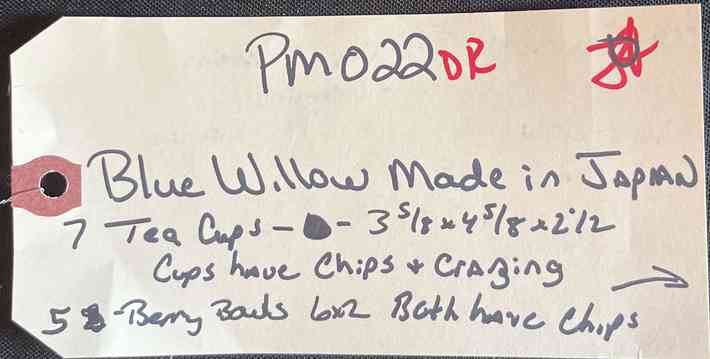 PM022DR
Blue Willow Made in JAPAN
7 Tea Cups - - 3 5/8 x 4 5/8 x 2 1/2
Cups have Chips + Crazing
5 - Berry Bowls 6x2 Both have Chips